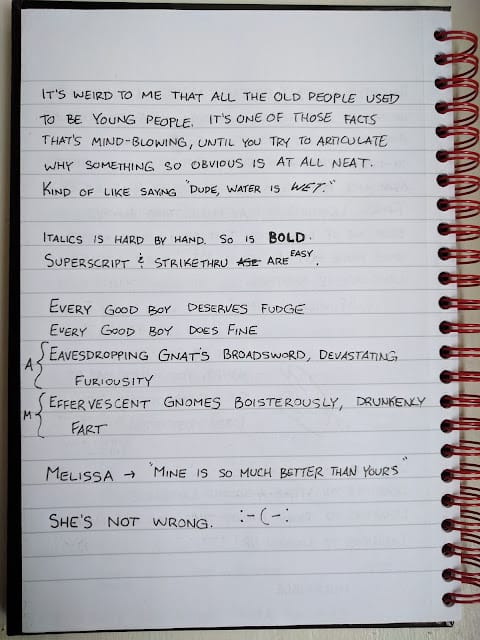 IT'S WEIRD TO ME THAT ALL THE OLD PEOPLE USED
TO BE YOUNG PEOPLE. IT'S ONE OF THOSE FACTS
THAT'S MIND-BLOWING, UNTIL YOU TRY TO ARTICULATE
WHY SOMETHING SO OBVIOUS IS AT ALL NEAT.
KIND OF LIKE SAYNG "DUDE, WATER IS WET."
ITALICS IS HARD BY HAND. SO IS BOLD.
SUPERSCRIPT & STRIKETHRU ARE ARE EASY.
EVERY GOOD BOY DESERVES FUDGE
EVERY GOOD BOY DOES FINE
A { EAVESDROPPING GNAT'S BROADSWORD, DEVASTATING
FURIOUSITY
M { EFFERVESCENT GNOMES BOISTEROUSLY, DRUNKENLY
FART
MELISSA → "MINE IS SO MUCH BETTER THAN YOURS"
SHE'S NOT WRONG. :-(-: